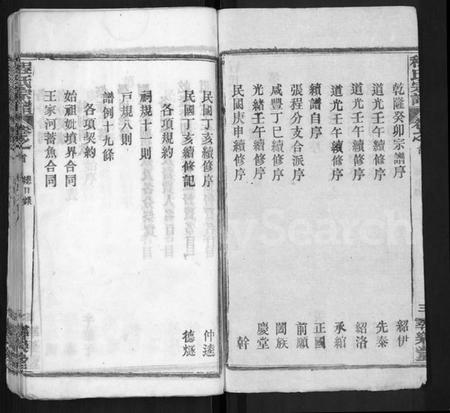 程氏宗譜
乾隆癸卯宗譜序 紹伊
道光壬午續修序 先秦
道光壬午續修序 紹洛
道光壬午續修序 承綰
續譜自序 正國
張程分支合派序 前順
咸豐丁巳續修序 闔族
光緒壬午續修序 慶堂
民國庚申續修序 幹
民國丁亥續修序 仲逵
民國丁亥續修記 德燧
各項規約
祠規十二則
戶規八則
譜例十九條
各項契約
始祖妣墳界合同
王家河蓄魚合同
程氏宗譜